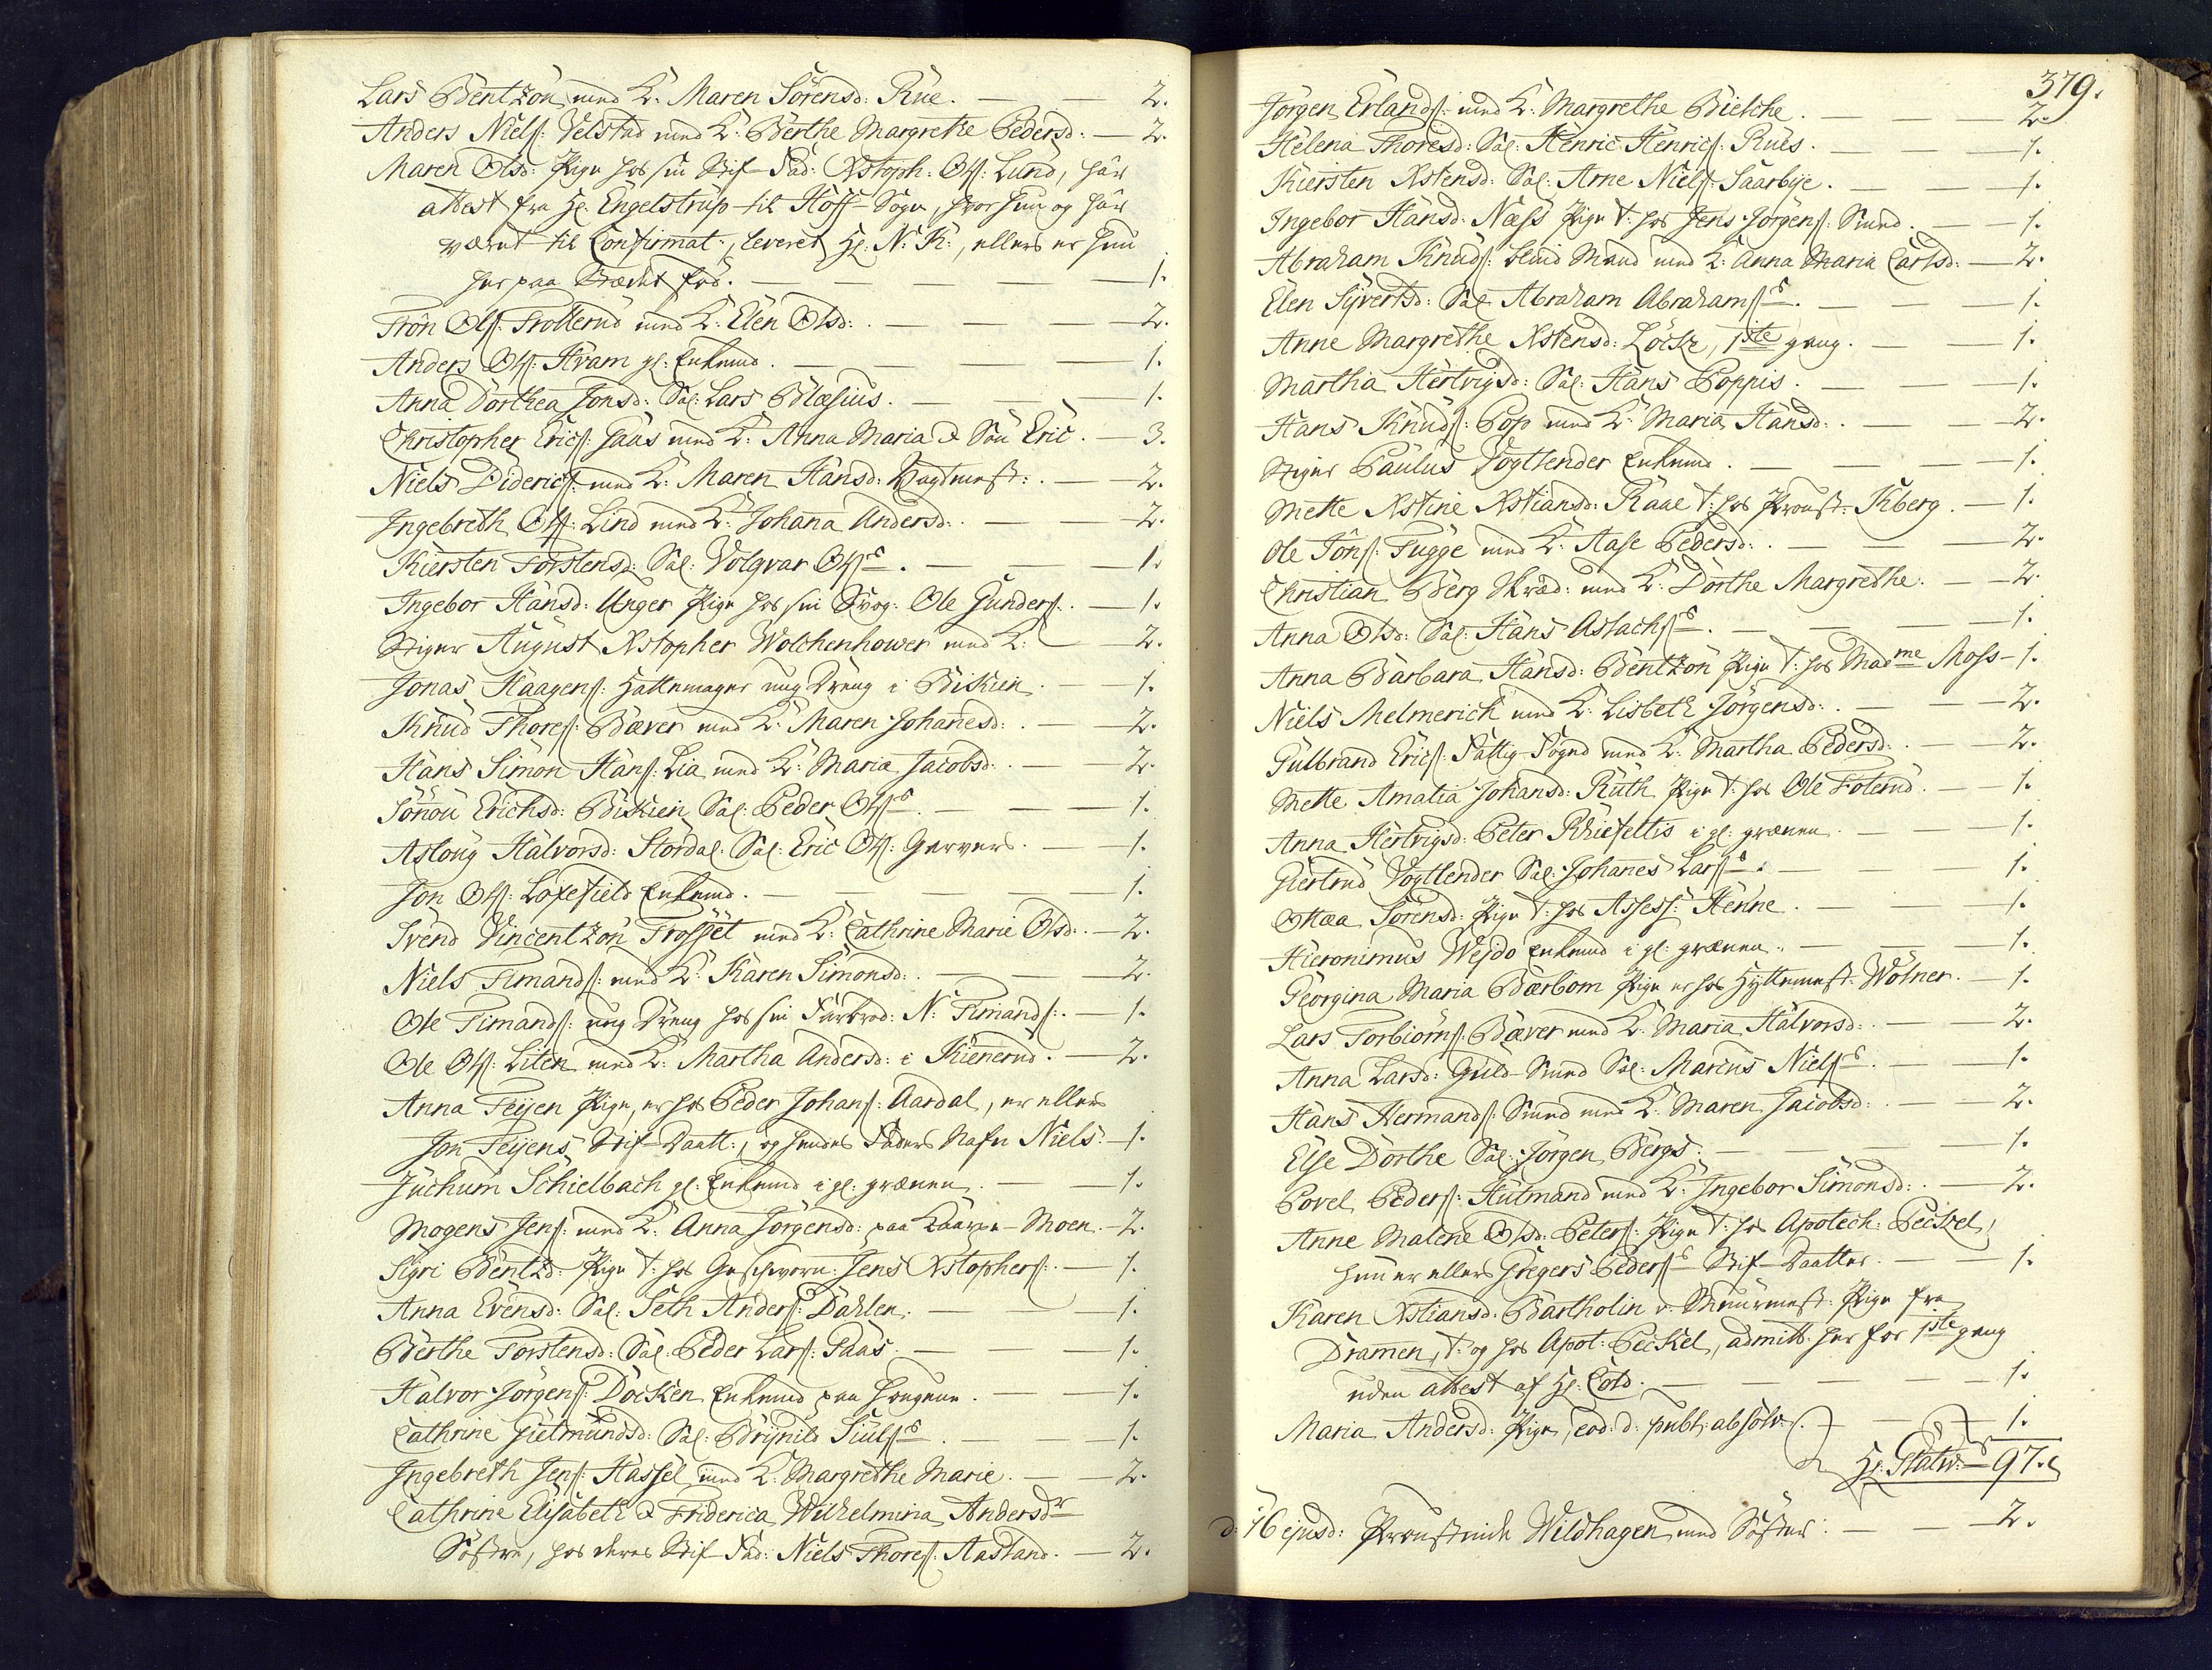 Lars Bentzon med K: Maren Sörensd: Rue. — — 2.
Anders Niels: Velstad med K: Berthe Margrethe Pedersd: — 2.
Maren Olsd: Pige hos sin Stif-Fad: Xstoph: Ols: Lund, har
attest fra Hr: Engelstrup til Hoff-Sogn, hvor hun og har
været til Confirmat:, leveret Hr: N: K:, ellers er hun
her paa Stædet föd. — — — — 1.
Trön Ols: Trollerud med K: Elen Olsd: . — — — 2.
Anders Ols: Kram gl: Enkemd. — — — 1.
Anna Dorthea Jonsd: Sal: Lars Blæsius. — — — 1.
Christopher Erics: Gaas med K: Anna Maria & Sön Eric. — 3.
Niels Diderics: med K: Maren Hansd: Vagtmest: . — 2.
Ingebreth Ols: Lind med K: Johana Andersd: . — 2.
Kiersten Torstensd: Sal: Volqvar Ols:s . — — 1.
Ingebor Hansd: Unger Pige hos sin Svog: Ole Gunders: . — 1.
Stiger August Xstopher Wolchenhower med K: — 2.
Jonas Haagens: Hattemager ung Dreng i Biskien. — 1.
Knud Thores: Bæver med K: Maren Johanesd: . — 2.
Hans Simon Hans: Lia med K: Maria Jacobsd: . — 2.
Sönou Erichsd: Biskien Sal: Peder Ols:s . — — 1.
Aslong Halvorsd: Stordal. Sal: Eric Ols: Garvers. — 1.
Jon Ols: Loxefield Enkemd. — — — 1.
Svend Vincentzon Trosset med K: Cathrine Marie Olsd: . — 2.
Niels Timands: med K: Karen Simonsd: . — — 2.
Ole Timands: ung Dreng hos sin Farbrod: N: Timands: . — 1.
Ole Ols: Liten med K: Martha Andersd: i Kienerud. — 2.
Anna Feijen Pige, er hos Peder Johans: Aardal, er ellers
Jon Feijens Stif-Daatt:, og hendes Faders Nafn Niels. — 1.
Juchum Schielbach gl: Enkemd i gl: grænen. — — 1.
Mogens Jens: med K: Anna Jörgensd: paa Kaarve-Moen. — 2.
Sigri Bentzd: Pige t: hos Geschworn: Jens Xstophers: . — 1.
Anna Evensd: Sal: Seth Anders: Dahlen. — — 1.
Berthe Torstensd: Sal: Peder Lars: Gaas. — — 1.
Halvor Jörgens: Döcken Enkemd paa Haugene. — — 1.
Cathrine Gietmundsd: Sal: Brynild Siuls:s . — — 1.
Ingebreth Jens: Hassel med K: Margrethe Marie. — — 2.
Cathrine Elisabeth & Friderica Wilhelmina Andersdr
Söstre, hos deres Stif-Fad: Niels Thores: Aasland. — 2.
379.
Jörgen Erlands: med K: Margrethe Bielche. — — 2.
Helena Thoresd: Sal: Henric Henrics: Rues. — — 1.
Kiersten Xstensd: Sal: Arne Niels: Saarbye. — — 1.
Ingebor Hansd: Næss Pige t: hos Jens Jörgens: Smed. — — 1.
Abraham Knuds: blind Mand med K: Anna Maria Carlsd: — 2.
Elen Syvertsd: Sal: Abraham Abrahams:s . — — 1.
Anne Margrethe Xstensd: Löche, 1ste gang. — — 1.
Martha Hertvigsd: Sal: Hans Poppis. — — 1.
Hans Knuds: Pop med K: Maria Hansd: . — — 2.
Stiger Paulus Vogtlender Enkemd. — — — 1.
Mette Xstine Xstiansd: Raae t: hos Provst: Kberg. — 1.
Ole Jöns: Tugge med K: Aase Pedersd: . — — 2.
Christian Berg Skræd: med K: Dorthe Margrethe. — — 2.
Anna Olsd: Sal: Hans Aslachs:s . — — — 1.
Anna Barbara Hansd: Bentzön Pige t: hos Madme Moss — 1.
Niels Melmerich med K: Lisbeth Jörgensd: . — — 2.
Gulbrand Erics: Fattig-Fogd med K: Martha Pedersd: . — 2.
Mette Amalia Johansd: Ruth Pige t: hos Ole Foterud. — 1.
Anna Hertvigsd: Peter Rhiefeltis i gl: grænen. — 1.
Giertrud Vogtlender Sal: Johanes Lars:s . — — 1.
Ottæa Sörensd: Pige t: hos Assess: Henne. — — 1.
Hieronimus Wejdo Enkemd i gl: grænen. — — 1.
Georgina Maria Bærbom Pige er hos Hyttemest: Wölner. — 1.
Lars Torbiörns: Bæver med K: Maria Halvorsd: . — 2.
Anna Larsd: Guld-Smed Sal: Marcus Niels:s . — 1.
Hans Hermands: Smed med K: Maren Jacobsd: . — 2.
Else Dorthe Sal: Jörgen Bergs. — — — 1.
Povel Peders: Hutmand med K: Ingebor Simonsd: . — 2.
Anne Malene Olsd: Peters: Pige t: hos Apotech: Peckel,
hun er ellers Gregers Peders:s Stif-Daatter. — — 1.
Karen Xstiansd: Bartholin v: Muurmest: Pige fra
Dramen, t: og hos Apot: Peckel, admitt: her for 1ste gang
uden attest af Hr: Cold. — — — 1.
Maria Andersd: Pige, eod: d: publ: absolv: . — — 1.
97.
d: 16 ejusd: Provstinde Wildhagen med Söster. — — 2.